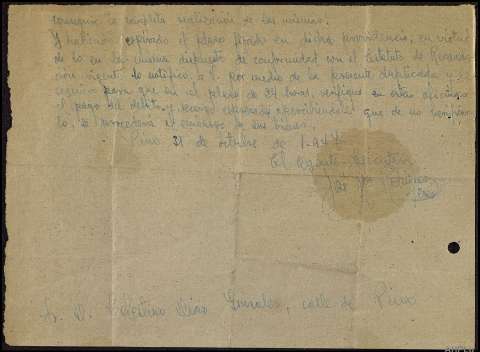 conseguir la completa realización de las mismas.
Y habiendo expirado el plazo fijado en dicha providencia, en virtud
de lo en la misma dispuesto de conformidad con el Estatuto de Recauda
ción vigente, lo notifico a V. por medio de la presente duplicada y
requiero para que en el plazo de 24 horas verifique en esta oficina
el pago del débito y recargo expresado apercibiéndole que de no verificar
lo, se procederá al embargo de sus bienes.
Pina 31 de octubre de 1.944
El Agente Ejecutivo
Sr. D. Celestino Diaz Gonzalez, calle de Pina